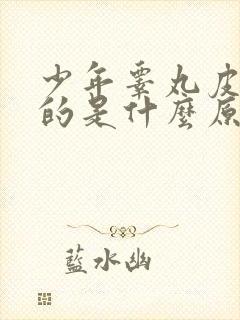 少年睾丸皮
的是什麼原
藍水幽